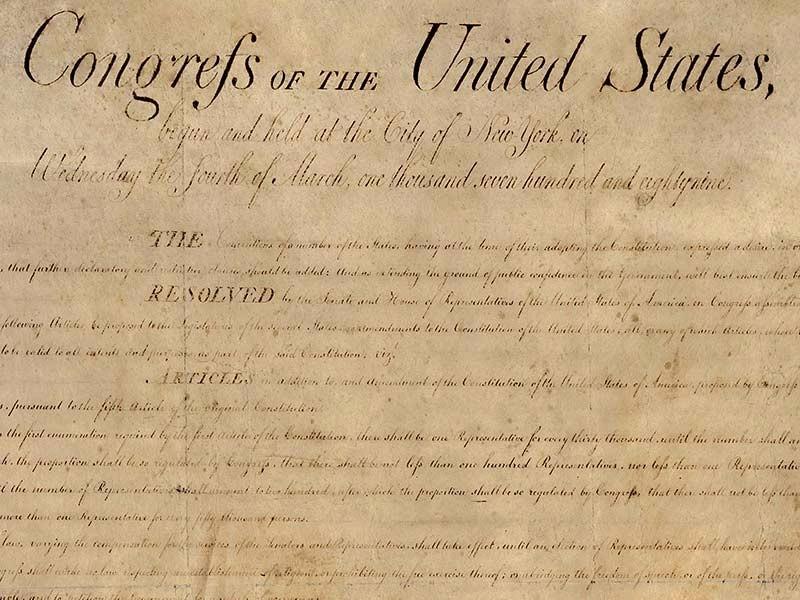 Congreſs OF THE United States,
begun and held at the City of New York, on
Wednesday the Fourth of March, one thousand seven hundred and eighty nine.
THE Conventions of a number of the States, having at the time of their adopting the Constitution, expressed a desire, in or
, that further declaratory and restrictive clauses should be added: And as extending the ground of public confidence in the Government, will best ensure the be
RESOLVED by the Senate and House of Representatives of the United States of America, in Congreſs aſsembled
following Articles be proposed to the Legislatures of the several States, as amendments to the Constitution of the United States, all, or any of which Articles, when
to be valid to all intents and purposes, as part of the said Constitution; viz.
ARTICLES in addition to, and amendment of the Constitution of the United States of America, proposed by Congreſs
s, pursuant to the fifth Article of the original Constitution.
the first enumeration required by the first Article of the Constitution, there shall be one Representative for every thirty thousand, until the number shall am
the proportion shall be so regulated by Congreſs, that there shall be not leſs than one hundred Representatives, nor leſs than one Representative
the number of Representatives shall amount to two hundred, after which the proportion shall be so regulated by Congreſs, that there shall not be leſs than
more than one Representative for every fifty thousand persons.
law, varying the compensation for the services of the Senators and Representatives, shall take effect, until an election of Representatives shall have intervened
greſs shall make no law respecting an establishment of religion, or prohibiting the free exercise thereof; or abridging the freedom of speech, or of the preſs, or the righ
and to petition the Government for a redreſs of grievances.